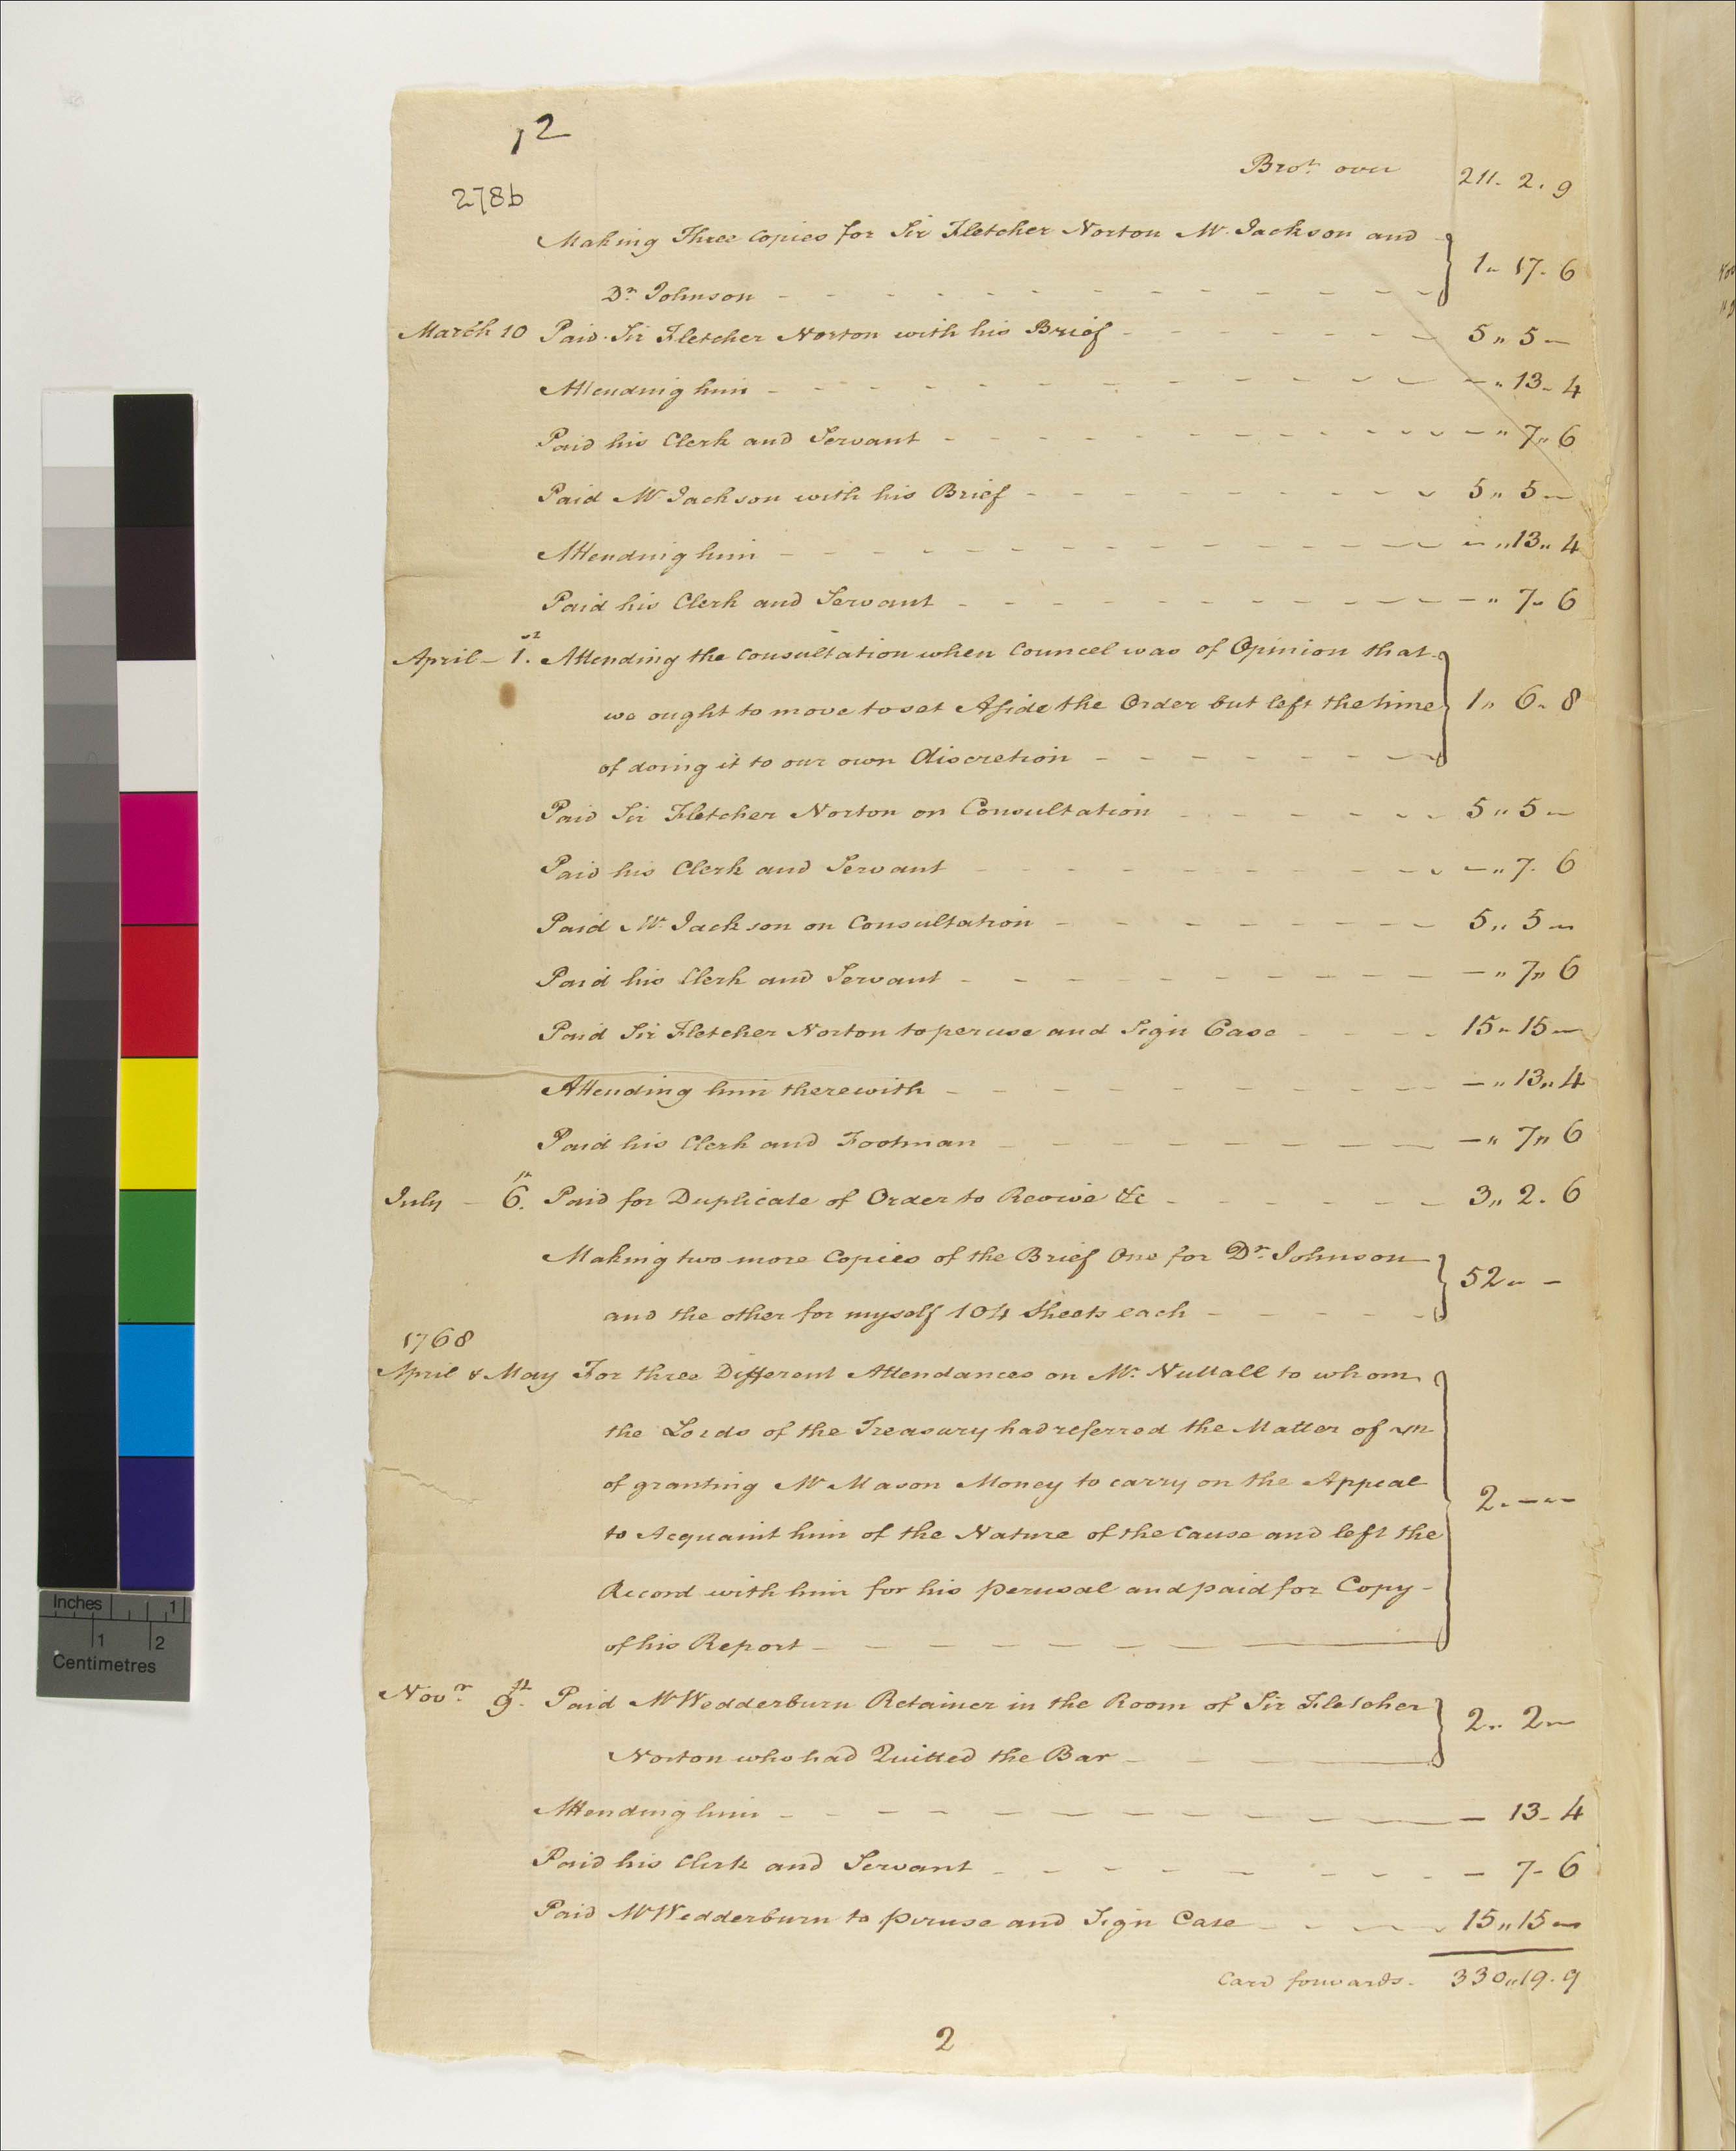 12
278b
Bro.t over 211. 2. 9
Making Three Copies for Sir Fletcher Norton Mr. Jackson and
Dr. Johnson - - - 1" 17. 6
March 10 Paid Sir Fletcher Norton with his Brief - - - 5 " 5 —
Attending him - - - — " 13 - 4
Paid his Clerk and Servant - - - — " 7 " 6
Paid Mr. Jackson with his Brief - - - 5 " 5 —
Attending him - - - — " 13 " 4
Paid his Clerk and Servant - - - — " 7 " 6
April - 1.st Attending the Consultation when Councel was of Opinion that
we ought to move to set Aside the Order but left the time 1 " 6 " 8
of doing it to our own Discretion - - -
Paid Sir Fletcher Norton on Consultation - - - 5 " 5 —
Paid his Clerk and Servant - - - — " 7. 6
Paid Mr. Jackson on Consultation - - - 5 " 5 —
Paid his Clerk and Servant - - - — " 7 " 6
Paid Sir Fletcher Norton to peruse and Sign Case - - - 15 " 15 —
Attending him therewith - - - — " 13 " 4
Paid his Clerk and Footman - - - — " 7 " 6
July - 6.th Paid for Duplicate of Order to Revive &c - - - 3 " 2. 6
Making two more Copies of the Brief One for Dr. Johnson 52 " —
and the other for myself 104 Sheets each - - -
1768
April & May For three Different Attendances on Mr. Nuttall to whom
the Lords of the Treasury had referred the Matter of
of granting Mr Mason Money to carry on the Appeal 2. — —
to Acquaint him of the Nature of the Cause and left the
Record with him for his perusal and paid for Copy -
of his Report - - -
Novr. 9th. Paid Mr Wedderburn Retainer in the Room of Sir Fletcher 2 " 2 —
Norton who had Quitted the Bar - - -
Attending him - - - — 13 - 4
Paid his Clerk and Servant - - - — 7 - 6
Paid Mr Wedderburn to peruse and Sign Case - - - 15 " 15 —
Card forwards. 330 " 19. 9
2
Inches 1
1 2
Centimetres